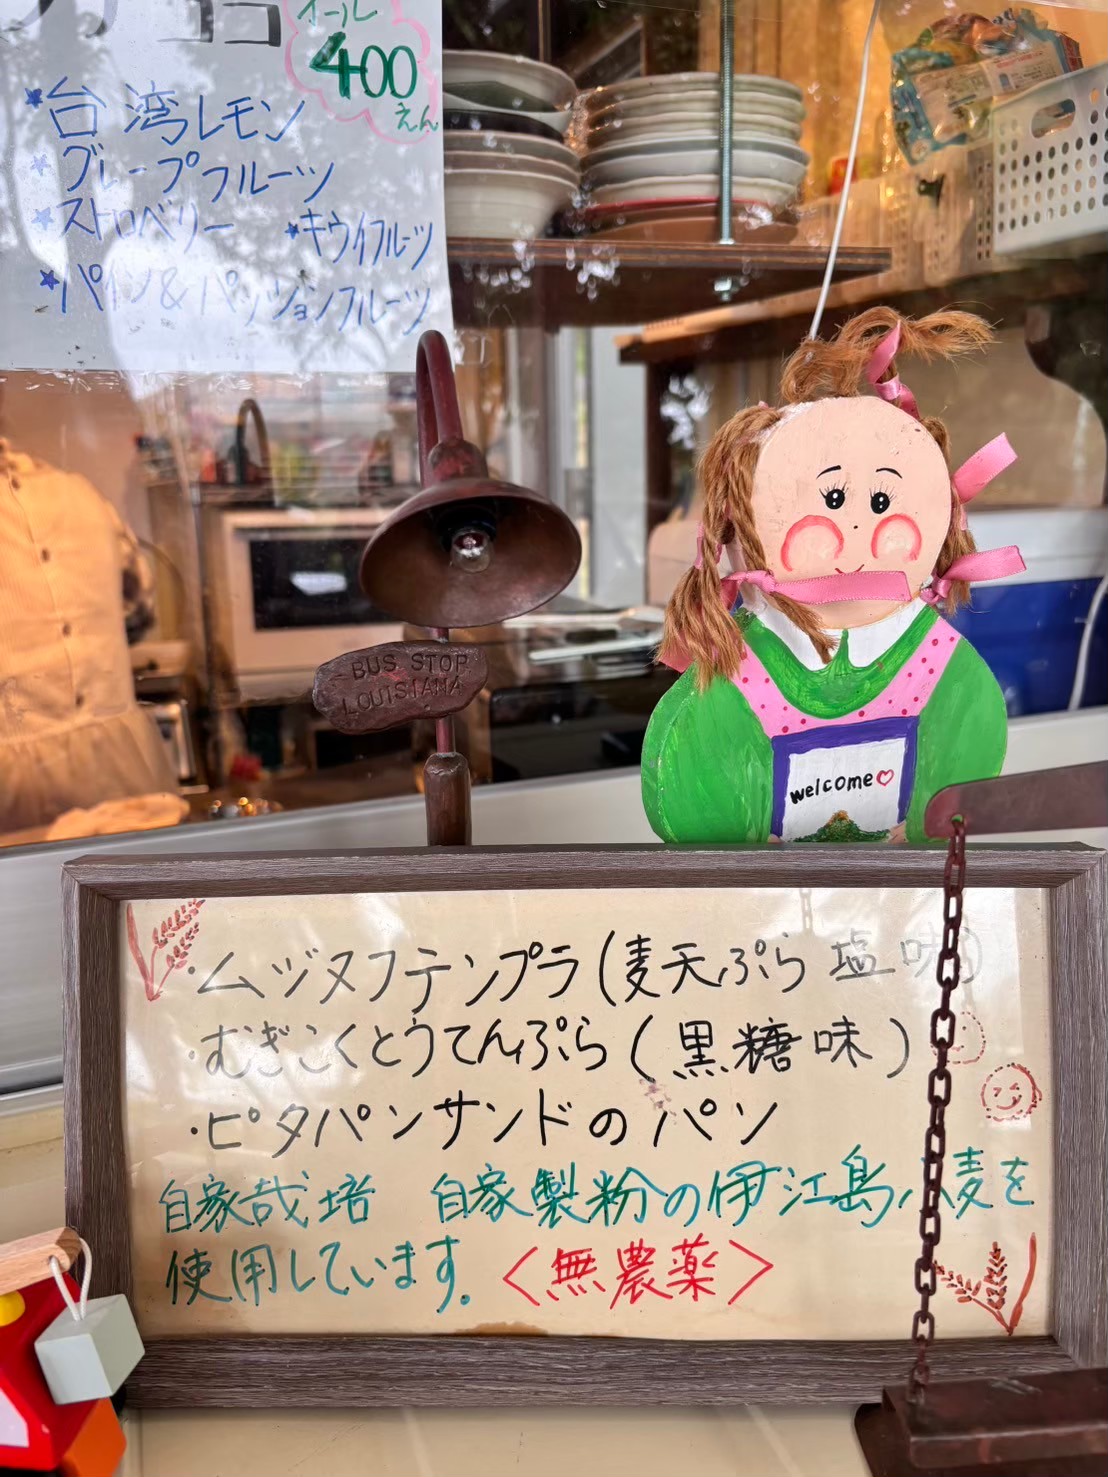 ココ
オール
400
えん
★台湾レモン
★グレープフルーツ
★ストロベリー ★キウイフルーツ
★パイン&パッションフルーツ
BUS STOP
LOUISIANA
welcome♡
・ムヅヌフテンプラ(麦天ぷら 塩味)
・むぎこくとうてんぷら(黒糖味)
・ピタパンサンドのパン
自家栽培 自家製粉の伊江島小麦を
使用しています。<無農薬>